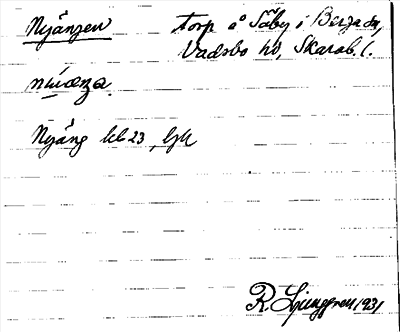 Nyängen torp å Säby i Berga sn,
Vadsbo hd, Skarab. l.
Nyäng kb 23
R. Ljunggren 1931